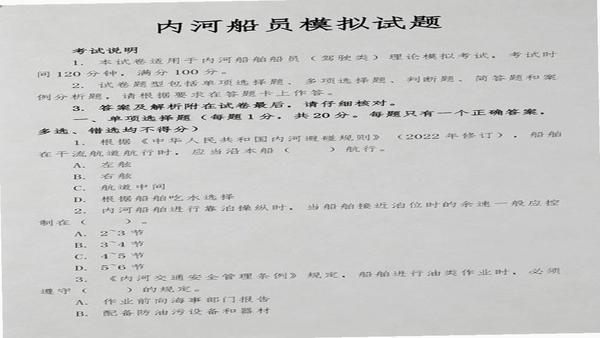 内河船员模拟试题
考试说明
1. 本试卷适用于内河船舶船员（驾驶类）理论模拟考试，考试时
间120分钟，满分100分。
2. 试卷题型包括单项选择题、多项选择题、判断题、简答题和案
例分析题，请根据要求在答题卡上作答。
3. 答案及解析附在试卷最后，请仔细核对。
一、单项选择题（每题1分，共20分。每题只有一个正确答案，
多选、错选均不得分）
1. 根据《中华人民共和国内河避碰规则》（2022年修订），船舶
在干流航道航行时，应当沿本船（  ）航行。
A. 左舷
B. 右舷
C. 航道中间
D. 根据船舶吃水选择
2. 内河船舶进行靠泊操纵时，当船舶接近泊位时的余速一般应控
制在（  ）。
A. 2~3节
B. 3~4节
C. 4~5节
D. 5~6节
3. 《内河交通安全管理条例》规定，船舶进行油类作业时，必须
遵守（  ）的规定。
A. 作业前向海事部门报告
B. 配备防油污设备和器材